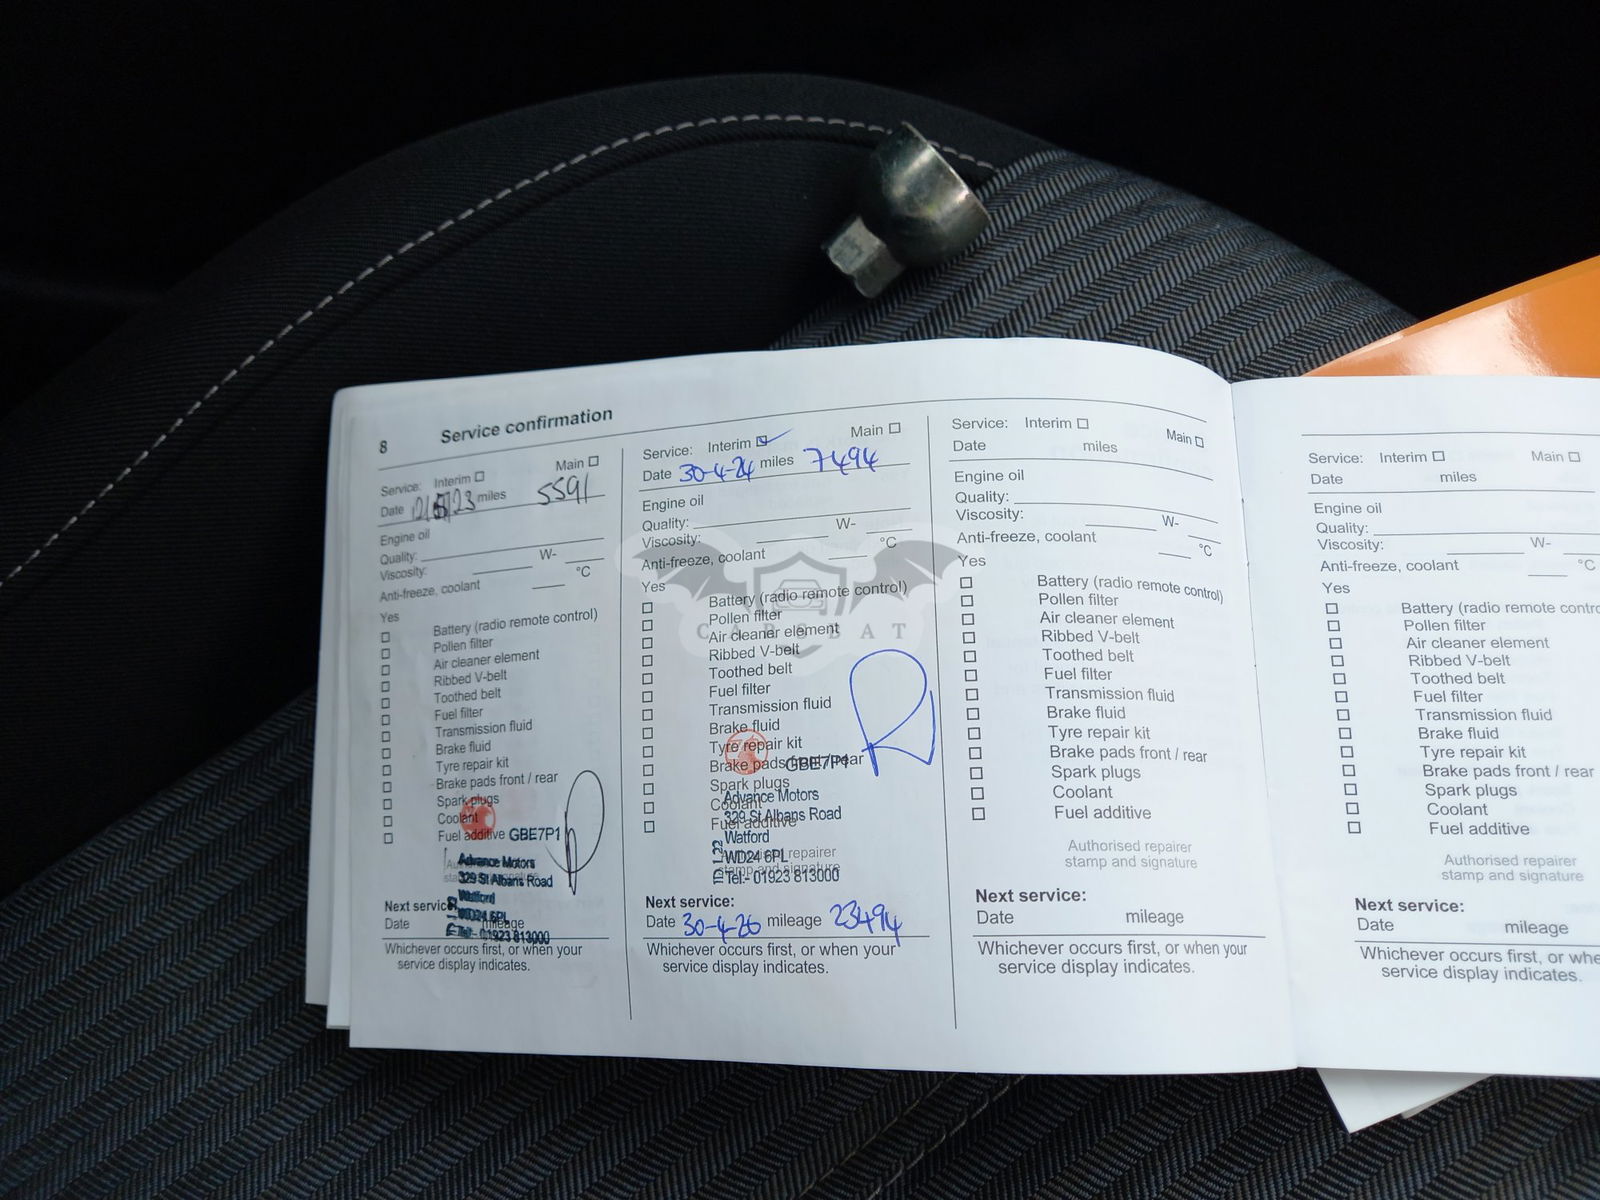 8 Service confirmation
Service: Interim Main
Date miles 5591
Engine oil
Quality:
Viscosity: W-
Anti-freeze, coolant °C
Yes
Battery (radio remote control)
Pollen filter
Air cleaner element
Ribbed V-belt
Toothed belt
Fuel filter
Transmission fluid
Brake fluid
Tyre repair kit
Brake pads front / rear
Spark plugs
Coolant
Fuel additive GBE7P1
Advance Motors
329 St Albans Road
Watford
WD24 6PL
Tel:- 01923 813000
Next service:
Date mileage
Whichever occurs first, or when your
service display indicates.
Service: Interim Main
Date 30-4-24 miles 7494
Engine oil
Quality:
Viscosity: W-
Anti-freeze, coolant °C
Yes
Battery (radio remote control)
Pollen filter
Air cleaner element
Ribbed V-belt
Toothed belt
Fuel filter
Transmission fluid
Brake fluid
Tyre repair kit
Brake pads front / rear
GBE7P1
Spark plugs
Coolant
Fuel additive
Advance Motors
329 St Albans Road
Watford
WD24 6PL
Tel:- 01923 813000
repairer
stamp and signature
Next service:
Date 30-4-26 mileage 23494
Whichever occurs first, or when your
service display indicates.
CARSBAT
Service: Interim Main
Date miles
Engine oil
Quality:
Viscosity: W-
Anti-freeze, coolant °C
Yes
Battery (radio remote control)
Pollen filter
Air cleaner element
Ribbed V-belt
Toothed belt
Fuel filter
Transmission fluid
Brake fluid
Tyre repair kit
Brake pads front / rear
Spark plugs
Coolant
Fuel additive
Authorised repairer
stamp and signature
Next service:
Date mileage
Whichever occurs first, or when your
service display indicates.
Service: Interim Main
Date miles
Engine oil
Quality:
Viscosity: W-
Anti-freeze, coolant °C
Yes
Battery (radio remote contro
Pollen filter
Air cleaner element
Ribbed V-belt
Toothed belt
Fuel filter
Transmission fluid
Brake fluid
Tyre repair kit
Brake pads front / rear
Spark plugs
Coolant
Fuel additive
Authorised repairer
stamp and signature
Next service:
Date mileage
Whichever occurs first, or whe
service display indicates.